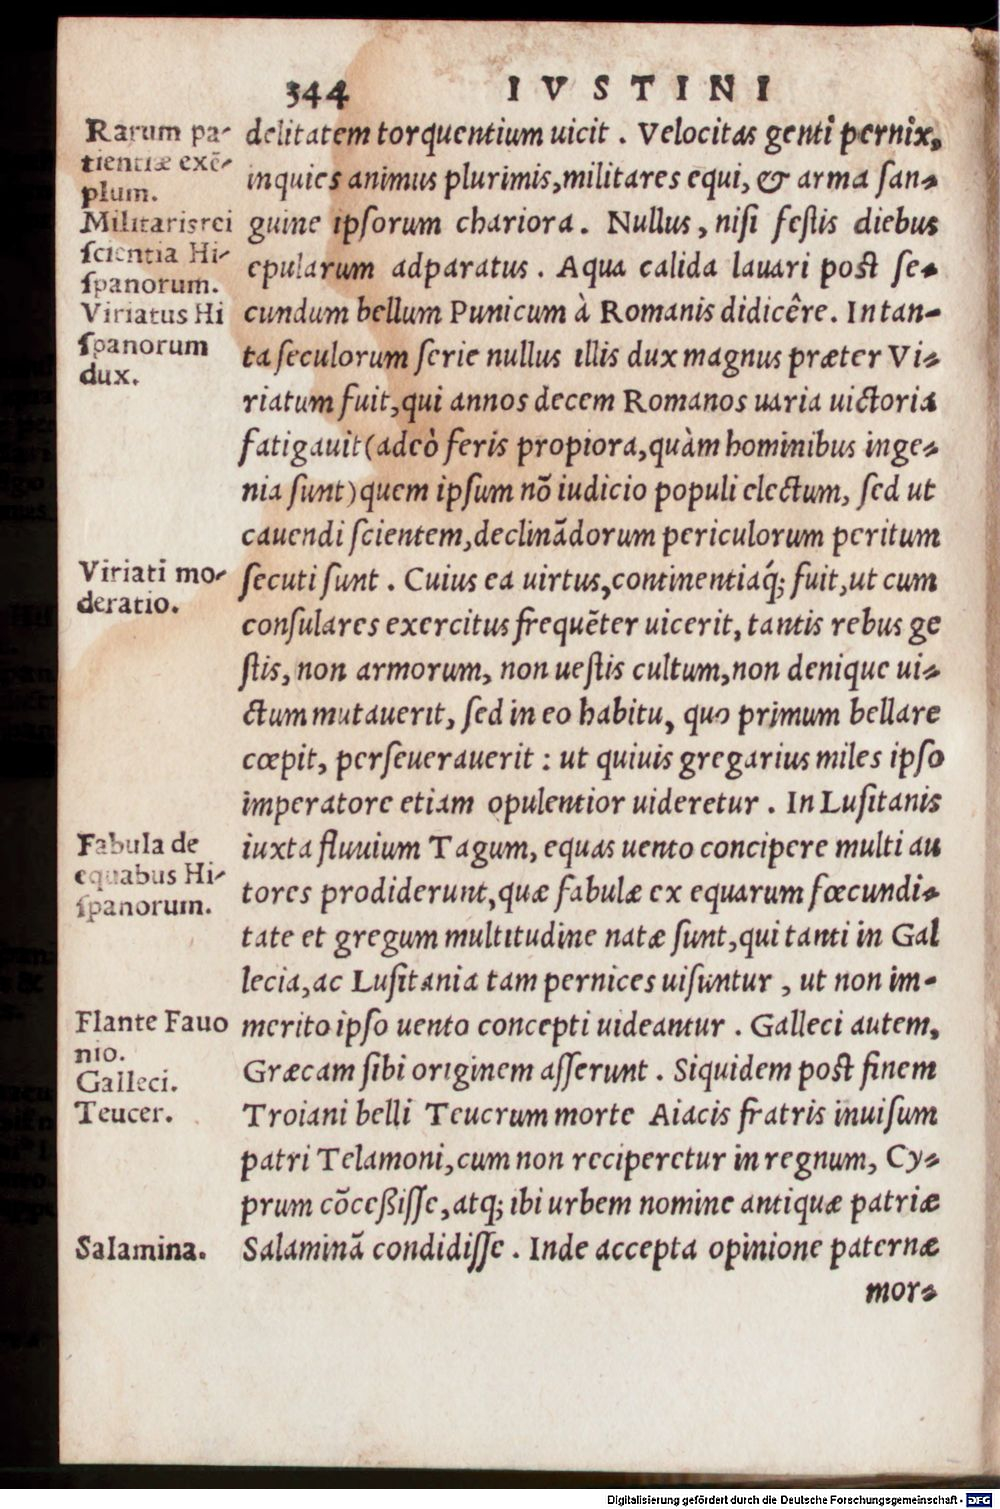 344 IVSTINI
Rarum pa-
tientiæ exē-
plum.
Militaris rei
scientia Hi-
spanorum.
Viriatus Hi
spanorum
dux.
Viriati mo-
deratio.
Fabula de
equabus Hi-
spanorum.
Flante Fauo
nio.
Galleci.
Teucer.
Salamina.
delitatem torquentium uicit. Velocitas genti pernix,
inquies animus plurimis, militares equi, & arma san-
guine ipsorum chariora. Nullus, nisi festis diebus
epularum adparatus. Aqua calida lauari post se-
cundum bellum Punicum à Romanis didicêre. In tan-
ta seculorum serie nullus illis dux magnus præter Vi-
riatum fuit, qui annos decem Romanos uaria uictoria
fatigauit (adeò feris propiora, quàm hominibus inge-
nia sunt) quem ipsum nō iudicio populi electum, sed ut
cauendi scientem, declinādorum periculorum peritum
secuti sunt. Cuius ea uirtus, continentiaq́; fuit, ut cum
consulares exercitus frequēter uicerit, tantis rebus ge
stis, non armorum, non uestis cultum, non denique ui-
ctum mutauerit, sed in eo habitu, quo primum bellare
cœpit, perseuerauerit: ut quiuis gregarius miles ipso
imperatore etiam opulentior uideretur. In Lusitanis
iuxta fluuium Tagum, equas uento concipere multi au
tores prodiderunt, quæ fabulæ ex equarum fœcundi-
tate et gregum multitudine natæ sunt, qui tanti in Gal
lecia, ac Lusitania tam pernices uisuntur, ut non im-
merito ipso uento concepti uideantur. Galleci autem,
Græcam sibi originem asserunt. Siquidem post finem
Troiani belli Teucrum morte Aiacis fratris inuisum
patri Telamoni, cum non reciperetur in regnum, Cy-
prum cōceßisse, atq; ibi urbem nomine antiquæ patriæ
Salaminā condidisse. Inde accepta opinione paternæ
mor-
Digitalisierung gefördert durch die Deutsche Forschungsgemeinschaft - DFG